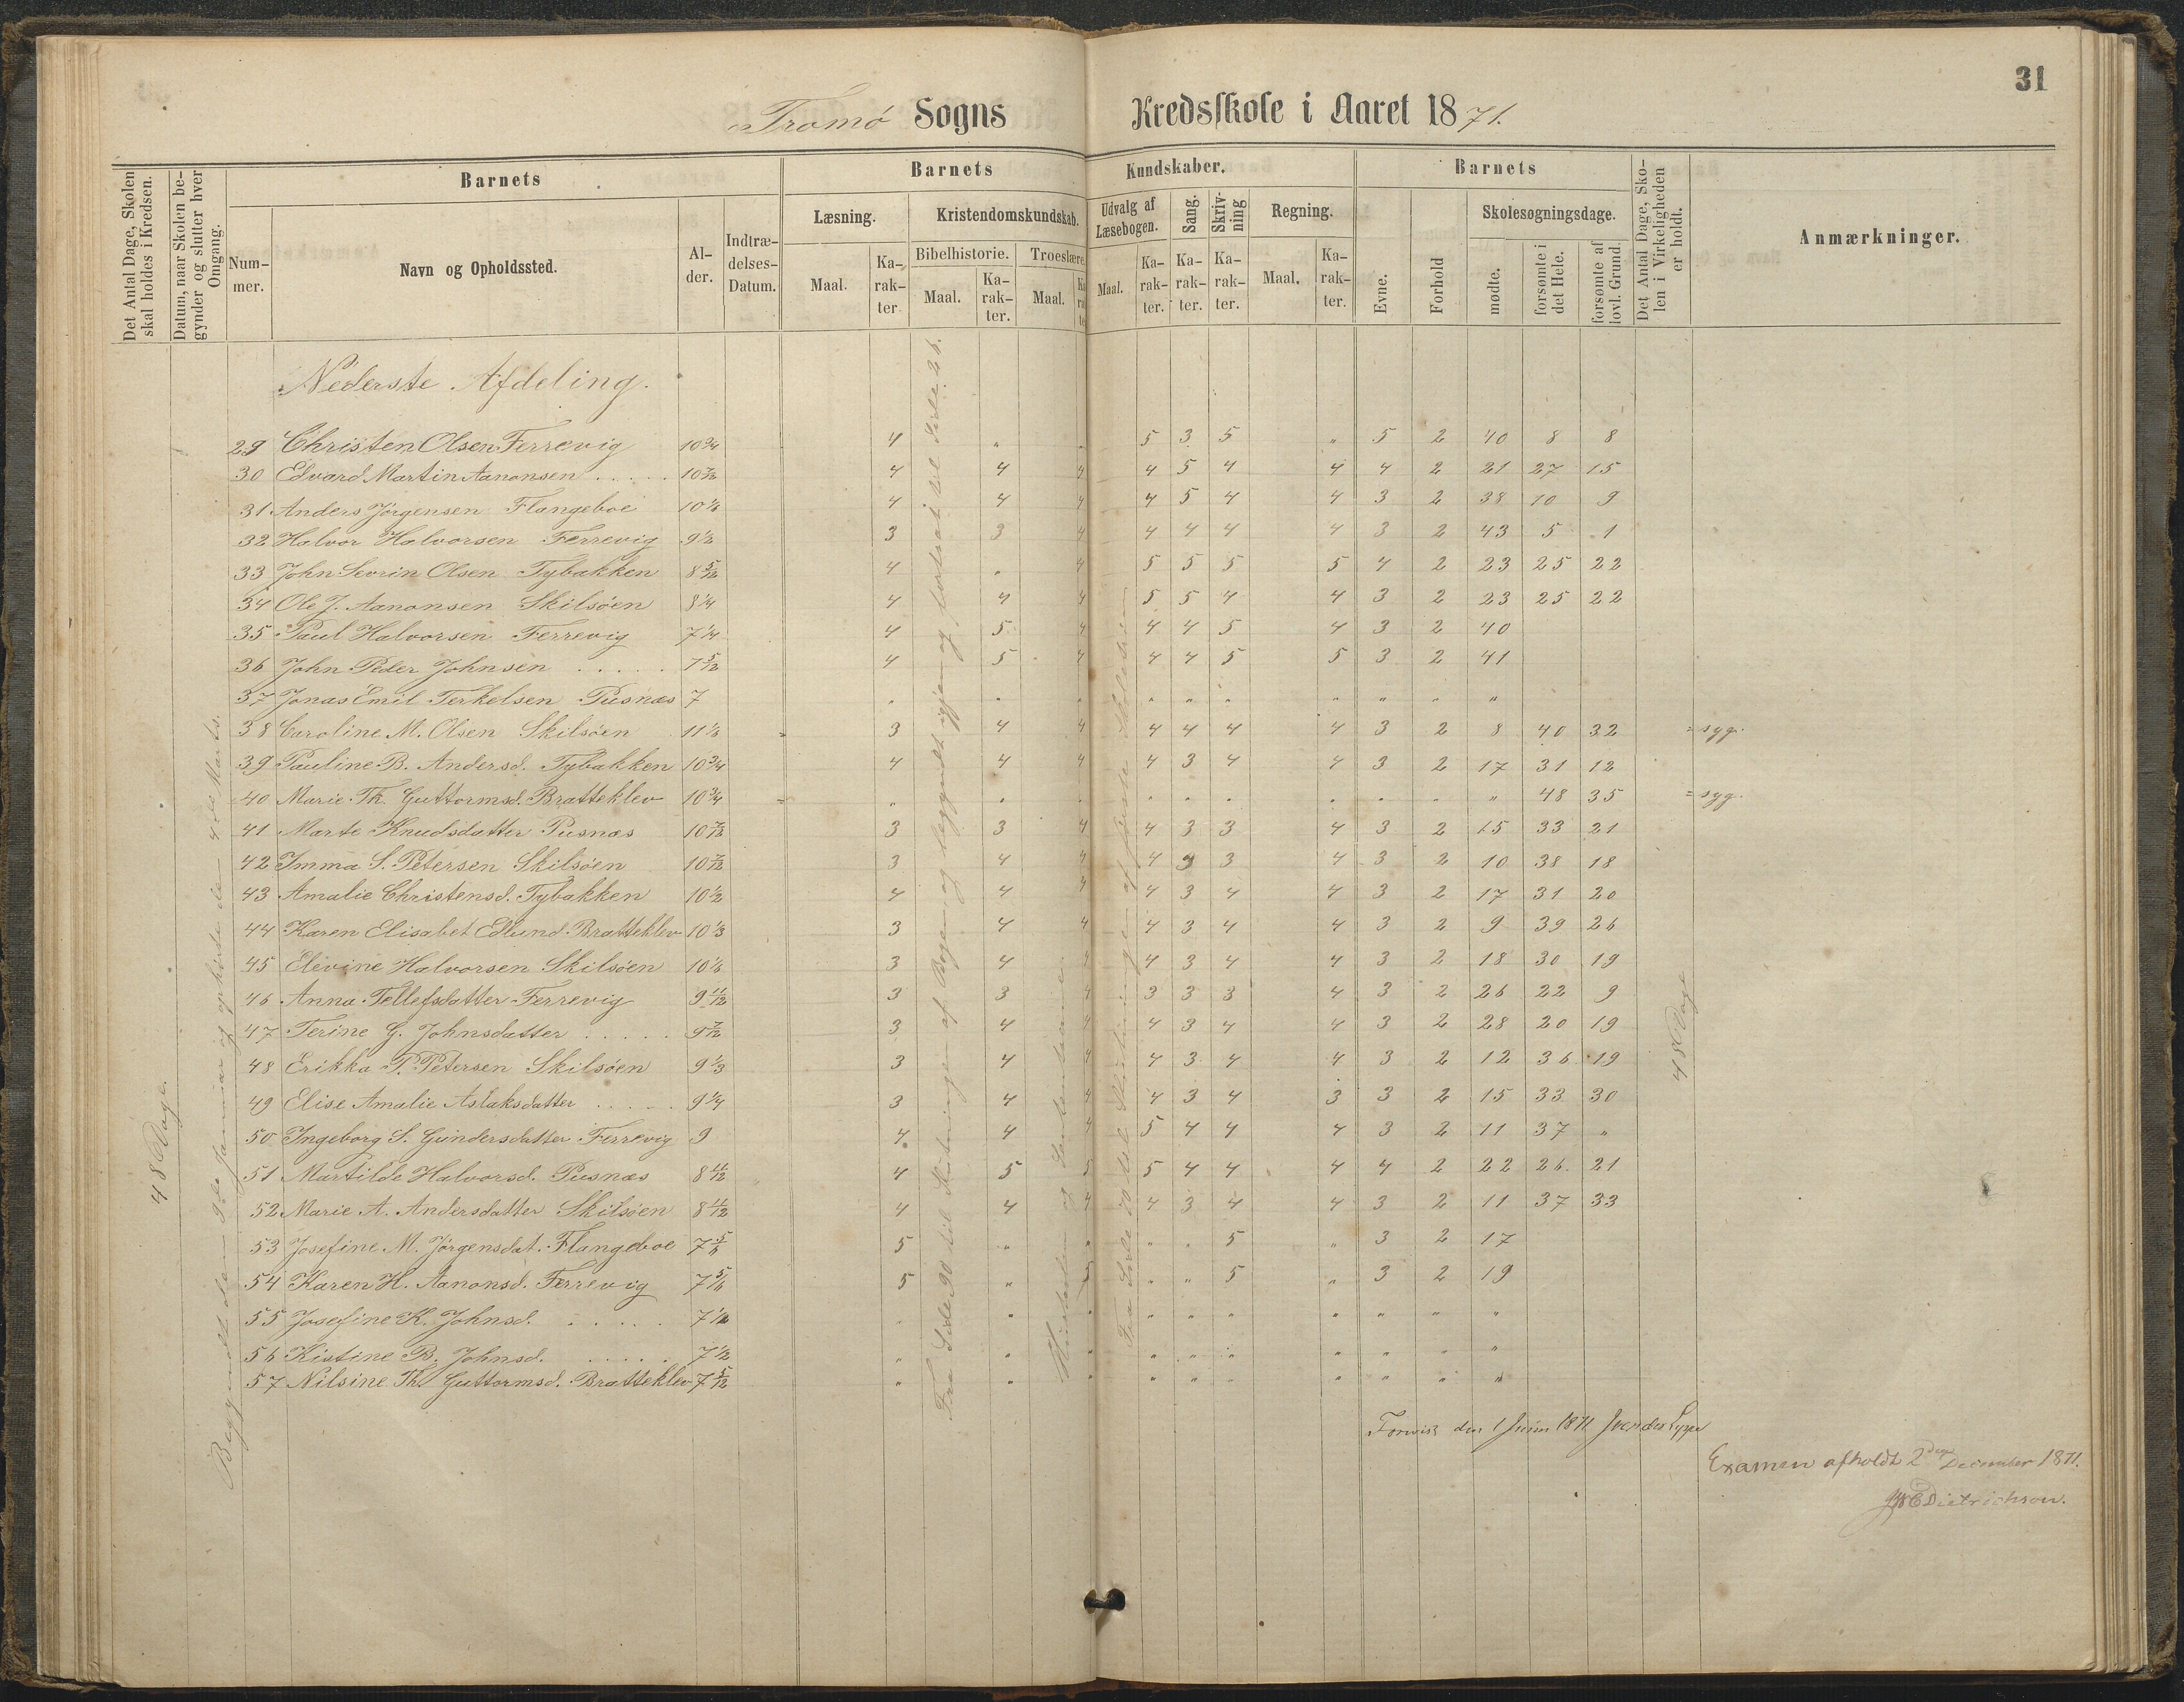 31
Tromø Sogns Kredsskole i Aaret 1871.
Det Antal Dage, Skolen skal holdes i Kredsen.
Datum, naar Skolen begynder og slutter hver Omgang.
Barnets
Nummer.
Navn og Opholdssted.
Alder.
Indtrædelses-Datum.
Barnets Kundskaber.
Læsning.
Maal.
Karakter
Kristendomskundskab.
Bibelhistorie.
Maal.
Karakter.
Troeslære.
Maal.
Udvalg af Læsebogen.
Maal.
Karakter.
Sang.
Karakter.
Skrivning
Karakter.
Regning.
Maal.
Karakter.
Barnets
Evne.
Forhold
Skolesøgningsdage.
mødte.
forsømte i det Hele.
forsømte af lovl. Grund.
Det Antal Dage, Skolen i Virkeligheden er holdt.
Anmærkninger.
Nederste Afdeling.
29 Christen Olsen Ferrevig 10 3/4 4 " 5 3 5 " 5 2 40 8 8
30 Edvard Martin Aanonsen . . . . . 4 4 4 4 5 4 4 4 2 21 27 15
31 Anders Jörgensen Flangeboe 4 4 4 4 5 4 4 3 2 38 10 9
32 Halvor Halvorsen Ferrevig 9 1/2 3 3 4 4 4 4 4 3 2 43 5 1
33 John Sevrin Olsen Tybakken 8 5/12 4 " 4 5 5 5 5 4 2 23 25 22
34 Ole J. Aanonsen Skilsöen 8 1/4 4 4 4 5 5 4 4 3 2 23 25 22
35 Paul Halvorsen Ferrevig 7 1/4 4 5 4 4 4 5 4 3 2 40
36 John Peder Johnsen . . . . . 7 5/12 4 5 4 4 4 5 5 3 2 41
37 Jonas Emil Terkelsen Pusnæs 7 " " " " " " " " " "
38 Caroline M. Olsen Skilsöen 3 4 4 4 4 4 4 3 2 8 40 32 = syg.
39 Pauline B. Andersd. Tybakken 10 3/4 4 4 4 4 3 4 4 3 2 17 31 12
40 Marie Th. Guttormsd. Bratteklev 10 3/4 " " " " " " " " " 48 35 = syg.
41 Marte Knudsdatter Pusnæs 10 7/12 3 3 4 4 3 3 4 3 2 15 33 21
42 Imma S. Petersen Skilsöen 10 7/12 3 4 4 4 3 3 4 3 2 10 38 18
43 Amalie Christensd. Tybakken 10 1/2 4 4 4 4 3 4 4 3 2 17 31 20
44 Karen Elisabet Edlund Bratteklev 10 1/3 3 4 4 4 3 4 4 3 2 9 39 26
45 Elevine Halvorsen Skilsöen 10 1/6 3 4 4 4 3 4 4 3 2 18 30 19
46 Anna Tellefsdatter Ferrevig 9 11/12 3 3 4 3 3 3 4 3 2 26 22 9
47 Terine G. Johnsdatter . . . . . 9 7/12 3 4 4 4 3 4 4 3 2 28 20 19
48 Erikka P. Petersen Skilsöen 9 1/3 3 4 4 4 3 4 4 3 2 12 36 19
49 Elise Amalie Aslaksdatter . . . . . 9 1/4 3 4 4 4 3 4 3 3 2 15 33 30
50 Ingeborg S. Gundersdatter Ferrevig 9 4 4 4 5 4 4 4 3 2 11 37 "
51 Martilde Halvorsd. Pusnæs 8 11/12 4 5 5 5 4 4 4 4 2 22 26 21
52 Marie A. Andersdatter Skilsöen 8 11/12 4 4 4 4 3 4 4 3 2 11 37 33
53 Josefine M. Jörgensdat. Flangeboe 7 5/6 5 " " " " 5 " 3 2 17
54 Karen H. Aanonsd. Ferrevig 7 5/6 5 " 5 " " 5 " 3 2 19
55 Josefine K. Johnsd. . . . . . 7 1/2 " " " " " " " " " "
56 Kistine B. Johnsd. . . . . . 7 1/2 " " " " " " " " " "
57 Nilsine Th. Guttormsd. Bratteklev 7 5/12 " " " " " " " " " "
48 Dage.
Begyndt den 9de Januar og ophörte den 4de Marts.
Fra Side 90 til Slutningen af Bogen og begyndt igjen og fortsat til Side 26.
Fra Side 70 til Slutningen af förste
48 Dage
den 1 Juni 1871
Examen afholdt 2den December 1871.
Dietrichson.